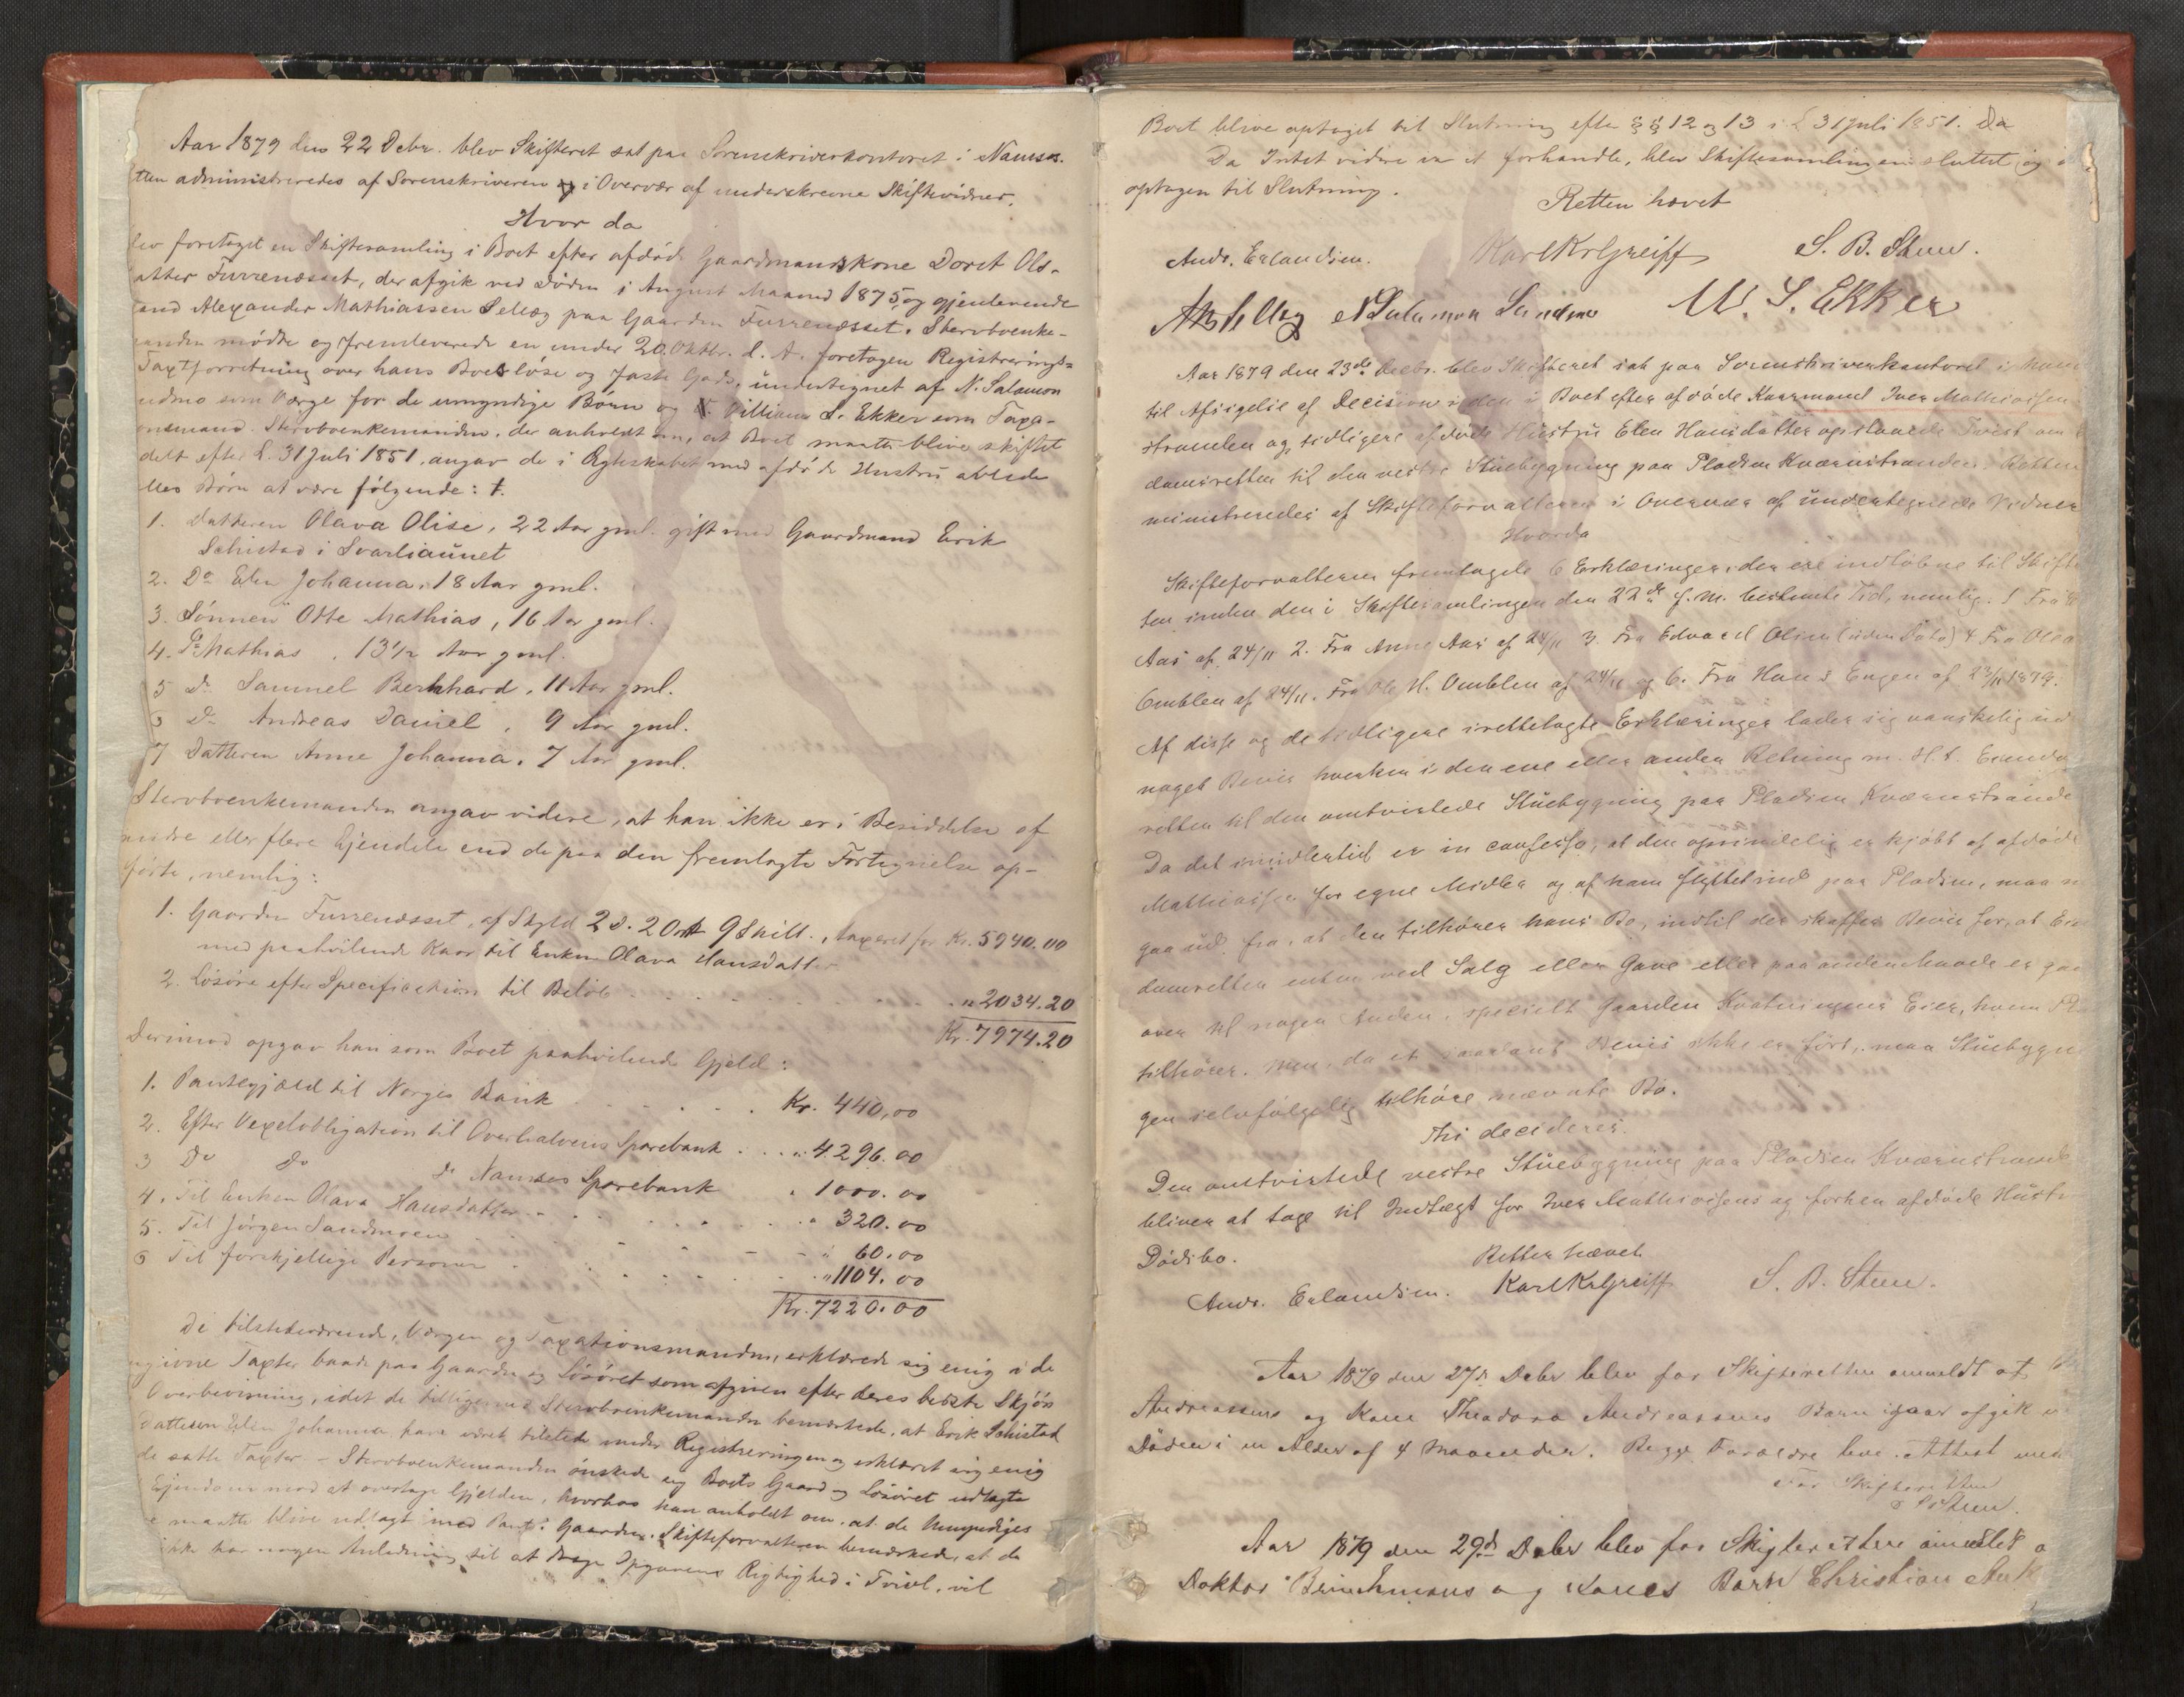 Aar 1879 den 22 Debr. blev Skifteret sat paa Sorenskriverkontoret i Namsos.
tten administreredes af Sorenskriveren og i Overvær af underskrevne Skiftevidner.
Hvor da
lev foretaget en Skiftesamling i Boet efter afdøde Gaardmandskone Doret Ols-
atter Furrenæsset, der afgik ved Døden i August Maaned 1875, og gjenlevende
and Alexander Mathiassen Selleg paa Gaarden Furrenæsset. Stervboenke-
anden mødte og fremleverede en under 20. Oktbr. d. A. foretagen Registrerings-
Taxtforretning over hans Boes løse og faste Gods, undertegnet af N. Salamon
ndmo som Værge for de umyndige Børn og Villiam S. Ekker som Taxa-
onsmand. Stervboenkemanden, der anholdt om, at Boet maatte blive skiftet
delt efter L. 31 Juli 1851, angav de i Ægteskabet med afdøde Hustru avlede
lles Børn at være følgende:
1. Datteren Olava Olise, 22 Aar gml. gift med Gaardmand Erik
Schistad i Svarliaunet
2. Do Elen Johanna, 18 Aar gml.
3. Sønnen Otte Mathias, 16 Aar gml.
4. Do Mathias, 13 1/2 Aar gml.
5 Do Samuel Bernhard, 11 Aar gml.
6 Do Andreas Daniel, 9 Aar gml.
7 Datteren Anne Johanna, 7 Aar gml.
Stervboenkemanden angav videre, at han ikke er i Besiddelse af
andre eller flere Ejendele end de paa den fremlagte Fortegnelse op-
førte, nemlig:
1. Gaarden Furrenæsset, af Skyld 2 d. 2 Ort 9 Skill., taxeret for Kr. 5940.00
med paahvilende Kaar til Enken Olava Hansdatter
2. Løsøre efter Specification til Beløb " 2034.20
Kr. 7974.20
Derimod opgav han som Boet paahvilende Gjeld:
1. Pantegjæld til Norges Bank Kr. 440,00
2. Efter Vexelobligation til Overhalvens Sparebank " 4296.00
3 Do do do Namsos Sparebank " 1000.00
4. Til Enken Olava Hansdatter " 320.00
5. Til Jørgen Sandmoen " 60.00
6 Til forskjellige Personer " 1104.00
Kr. 7220.00
De tilstedeværende, Værgen og Taxationsmanden, erklærede sig enig i de
ngivne Taxter baade paa Gaarden og Løsøret som afgiven efter deres bedste Skjøn
Overbevisning, idet de tilligemed Stervboenkemanden bemærkede, at Erik Schistad
Datteren Elen Johanna have været tilstede under Registreringen og erklæret sig enig
de satte Taxter. - Stervboenkemanden ønskede sig Boets Gaard og Løsøret udlagte
Ejendom mod at overtage Gjelden, hvorhos han anholdt om, at de Umyndiges
maatte blive udlagt med Pant i Gaarden. Skifteforvalteren bemærkede, at da
ikke har nogen Anledning til at drage Opgavens Rigtighed i Tvivl, vil
Boet blive optaget til Slutning efter §§ 12 og 13 i L 31 Juli 1851. Da
Da Intet videre var at forhandle, blev Skiftesamlingen sluttet og
optagen til Slutning.
Retten hævet
Andr. Erlandsen. Karl Kr Greiff S. B. Steen.
N Salamon W. S. Ekker
Aar 1879 den 23de Decbr. blev Skifteret sat paa Sorenskriverkontoret i Nams
til Afsigelse af Decision i den i Boet efter afdøde Kaarmand Iver Mathiassen
stranden og tidligere afdøde Hustru Elen Hansdatter opstaaede Tvist om
domsretten til den vestre Stuebygning paa Pladsen Kværnstranden. Retten
ministreredes af Skifteforvalteren i Overvær af undertegnede Vidner
Hvorda
Skifteforvalteren fremlagde 6 Erklæringer, der ere indløbne til Skifte
ten inden den i Skiftesamlingen den 22de f. M. bestemte Tid, nemlig: 1 Fra
Aas af 24/11 2. Fra Anne Aas af 24/11 3. Fra Edvard Olsen (uden Dato) 4. Fra Ole
Omblen af 24/11. Fra Ole H. Omblen af 24/11 og 6. Fra Hans Engen af 23/11 1879.
Af disse og de tidligere irettelagte Erklæringer lader sig vanskelig ud
noget Bevis hverken i den ene eller anden Retning m. H. t. Eiendo
retten til den omtvistede Stuebygning paa Pladsen Kværnstrande
Da det imidlertid er in confesso, at den oprindelig er kjøbt af afdøde
Mathiassen for egne Midler og af ham flyttet ind paa Pladsen, maa m
gaa ud fra, at den tilhører hans Bo, indtil der skaffes Bevis for, at Eien
domsretten enten ved Salg eller Gave eller paa anden Maade er gaa
over til nogen Anden, specielt Gaarden Eier, hvem Pl
tilhører. Men, da et saadant Bevis ikke er ført, maa Stuebygni
gen selvfølgelig tilhøre nævnte Bo.
Thi decideres:
Den omtvistede vestre Stuebygning paa Pladsen Kværnstrande
bliver at tage til Indtægt for Iver Mathiassens og forhen afdøde Hustr
Dødsbo.
Retten hævet
Andr. Erlandsen. Karl Kr Greiff S. B. Steen.
Aar 1879 den 27de Debr blev for Skifteretten anmeldt at
Andreassens og Kone Theodora Andreassens Barn igaar afgik v
Døden i en Alder af 4 Maaneder. Begge Forældre leve. Attest med
For Skifteretten
S B Steen.
Aar 1879 den 29de Debr blev for Skifteretten anmeldt a
Doktor Brinchmanns og Kones Barn Christian